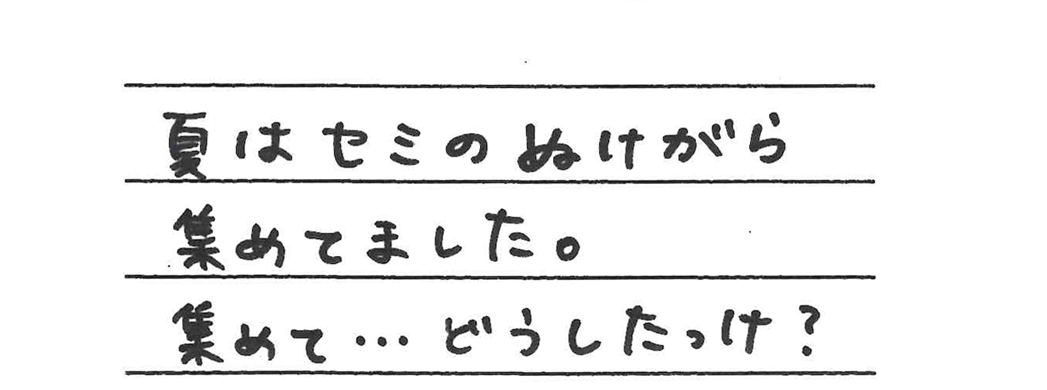 夏はセミのぬけがら
集めてました。
集めて…どうしたっけ？